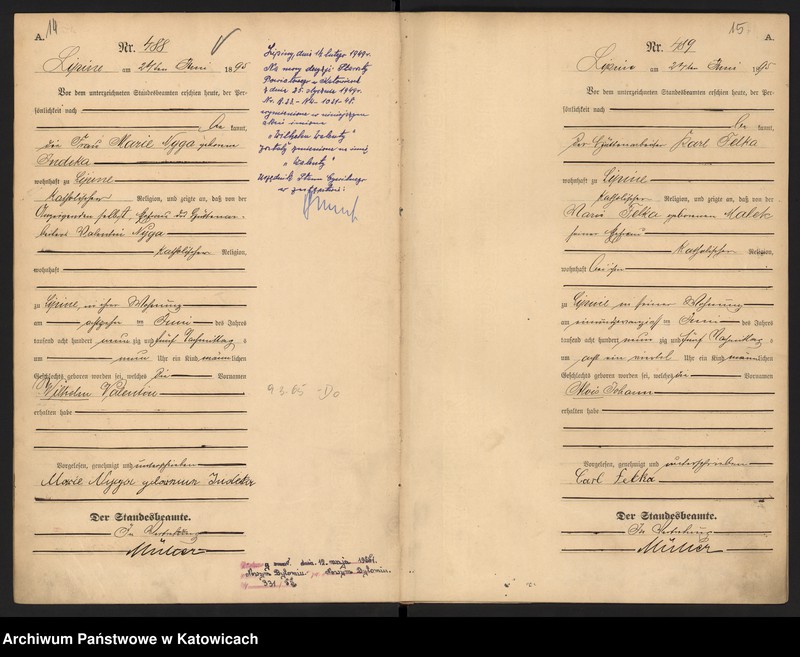 14
A.
Nr. 488
Lipine am 24ten Juni 1895
Vor dem unterzeichneten Standesbeamten erschien heute, der Per-
sönlichkeit nach
be kannt,
die Frau Marie Nyga geborene
Indeka
wohnhaft zu Lipine
katholischer Religion, und zeigte an, daß von der
Ehefrau des Hütten
Valentin Nyga
katholischer Religion,
wohnhaft
zu Lipine, in ihrer Wohnung
am achtzehn ten Juni des Jahres
tausend acht hundert neun zig und fünf Vormittag s
um neun Uhr ein Kind männlichen
Geschlechts geboren worden sei, welches die Vornamen
Wilhelm Valentin
erhalten habe
Vorgelesen, genehmigt und unterschrieben
Marie Nyga geborene Indeka
Der Standesbeamte.
In Vertretung
Müller
Lipiny, dnia 16 lutego 1949 r.
Na mocy decyzji Starosty
Powiatowego w Katowicach
z dnia 25. stycznia 1949 r.
wymienione w niniejszym
akcie imiona
"Wilhelm Walenty"
zostały zmienione na imię
"Walenty"
Urzędnik Stanu Cywilnego
w zastępstwie:
9.3.65
dnia 12. maja 1965 r.
331/65
15
A.
Nr. 489
Lipine am 24ten Juni 1895
Vor dem unterzeichneten Standesbeamten erschien heute, der Per-
sönlichkeit nach
be kannt,
der Hüttenarbeiter Karl Petka
wohnhaft zu Lipine
katholischer Religion, und zeigte an, daß von der
Marie Petka geborenen Malek
seiner Ehefrau
katholischer Religion,
wohnhaft bei ihm
zu Lipine in seiner Wohnung
am einundzwanzigsten Juni des Jahres
tausend acht hundert neun zig und fünf Vormittag s
um acht ein viertel Uhr ein Kind männlichen
Geschlechts geboren worden sei, welches die Vornamen
Alois Johann
erhalten habe
Vorgelesen, genehmigt und unterschrieben
Carl Petka
Der Standesbeamte.
In Vertretung
Müller
Archiwum Państwowe w Katowicach